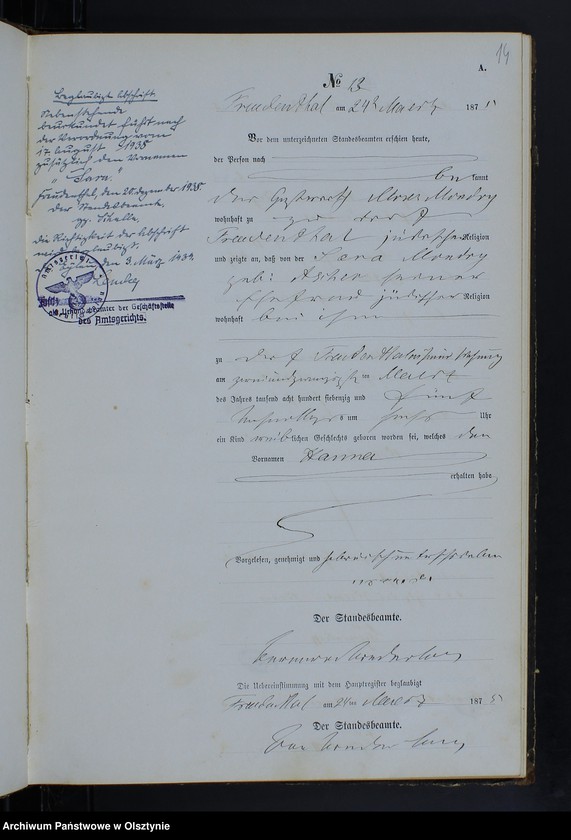 14
A.
Nº 13
Freudenthal am 24ten Maerz 1875
Vor dem unterzeichneten Standesbeamten erschien heute,
der Person nach
be kannt
der Gastwirth Moses Mondry
wohnhaft zu dorf
Freudenthal jüdischer Religion
und zeigte an, daß von der Sara Mondry
geb: Ascher seiner
Ehefrau jüdischer Religion
wohnhaft bei ihm
zu dorf Freudenthal in seiner Wohnung
am zweiundzwanzigsten Maerz
des Jahres tausend acht hundert siebenzig und fünf
Nachmittags um sechs Uhr
ein Kind weiblichen Geschlechts geboren worden sei, welches den
Vornamen Hanna
erhalten habe
Vorgelesen, genehmigt und hebräisch unterschrieben
worden.
Der Standesbeamte.
Die Uebereinstimmung mit dem Hauptregister beglaubigt
Freudenthal am 24ten Maerz 1875
Der Standesbeamte.
Beglaubigte Abschrift.
Nebenstehende
beurkundet führt nach
der Verordnung vom
17. August 1938
zusätzlich den Vornamen
"Sara"
Freudenthal, den 20. Dezember 1938
Der Standesbeamte.
gz.
Die Richtigkeit der Abschrift
wird beglaubigt.
den 3. März 1939.
als Urkundsbeamter der Geschäftsstelle
des Amtsgerichts.
Archiwum Państwowe w Olsztynie